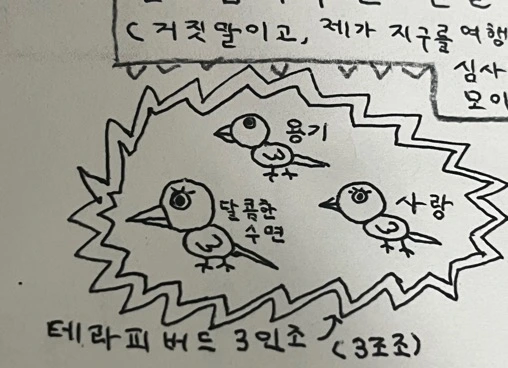 (거짓말이고, 제가 지구를 여행
심사
모이
용기
달콤한
수면
사랑
테라피 버드 3인조
(3조조)